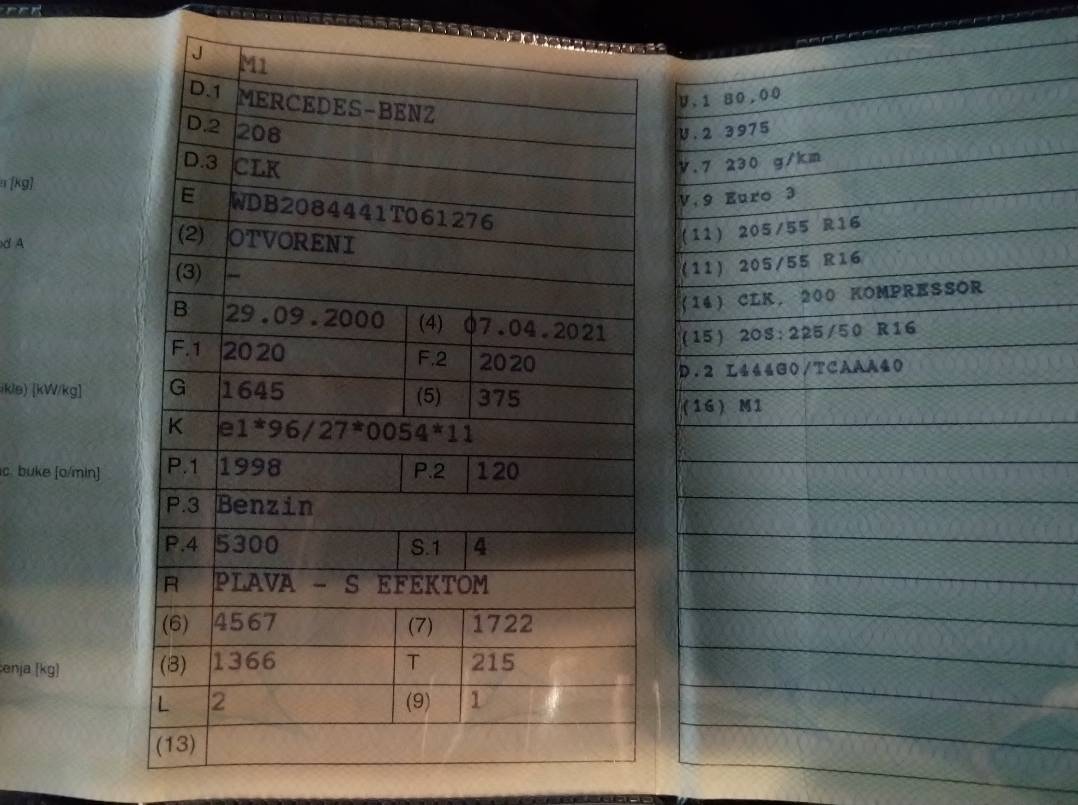 J M1
D.1 MERCEDES-BENZ
D.2 208
D.3 CLK
E WDB2084441T061276
(2) OTVORENI
(3) -
B 29.09.2000 (4) 07.04.2021
F.1 2020 F.2 2020
G 1645 (5) 375
K e1*96/27*0054*11
P.1 1998 P.2 120
P.3 Benzin
P.4 5300 S.1 4
R PLAVA - S EFEKTOM
(6) 4567 (7) 1722
(8) 1366 T 215
L 2 (9) 1
(13)
U.1 80,00
U.2 3975
V.7 230 g/km
V.9 Euro 3
(11) 205/55 R16
(11) 205/55 R16
(14) CLK, 200 KOMPRESSOR
(15) 20S:225/50 R16
D.2 L444G0/TCAAA40
(16) M1
[kg]
od A
[kW/kg]
buke [o/min]
[kg]